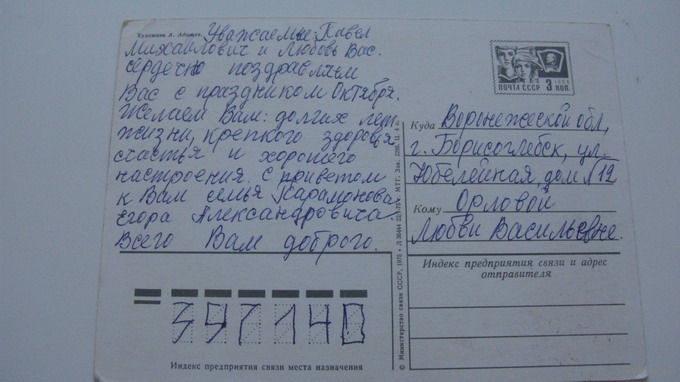 Художник А.
Уважаемые: Павел
Михайлович и Любовь Вас.
сердечно поздравляем
Вас с праздником Октября.
Желаем Вам: долгих лет
жизни, крепкого здоровья
счастья и хорошего
настроения. С приветом
к Вам семья Карамонова
Егора Александровича
Всего Вам доброго.
ПОЧТА СССР 3 КОП.
Куда Воронежской обл,
г. Борисоглебск, ул.
Юбилейная, дом №12
Кому Орловой
Любви Васильевне.
Индекс предприятия связи и адрес
отправителя
397140
Индекс предприятия связи места назначения
© Министерство связи СССР, 1975